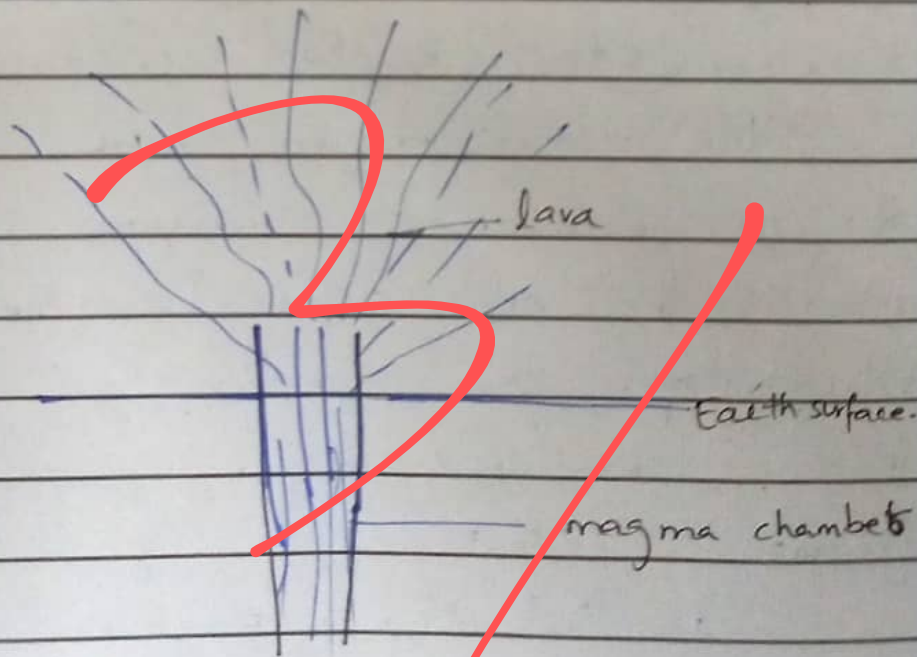 lava
Earth surface.
magma chamber
3/